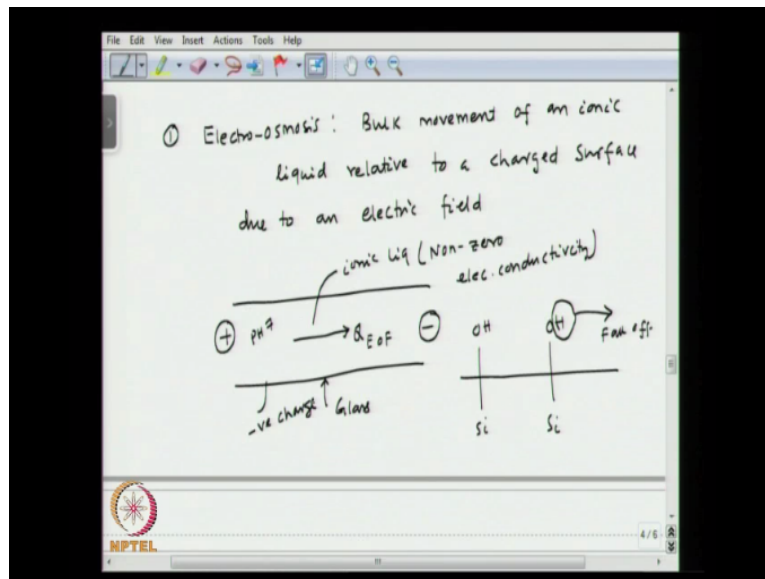 File Edit View Insert Actions Tools Help
① Electro-osmosis : Bulk movement of an ionic
liquid relative to a charged surface
due to an electric field
ionic liq (Non-zero
elec. conductivity)
+ PH7 → Q EOF - OH OH → Fall off
-ve charge Glass
Si Si
4/6
NPTEL